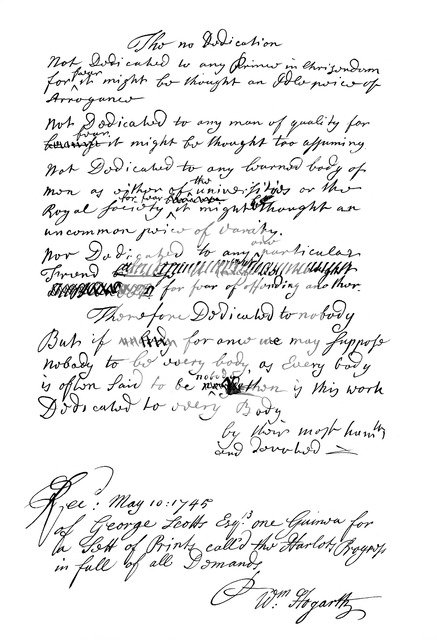 The no Dedication
Not Dedicated to any Prince in Chrisendom
for fear it might be thought an Idle peice of
Arrogance
Not Dedicated to any man of quality for
fear it might be thought too assuming
Not Dedicated to any learned body of
men as either of the universitys or the
Royal Society for fear it might be thought an
uncommon peice of Vanity.
Nor Dedicated to any one particular
Friend
for fear of offending another.
Therefore Dedicated to nobody
But if for once we may suppose
nobody to be every body, as Every body
is often said to be nobody then is this work
Dedicated to every Body
by their most humble
and devoted
Rec.d May 10: 1745
of George Scotts Esq.rs one Guinea for
a Sett of Prints call'd the Harlots Progress
in full of all Demands,
P W.m Hogarth